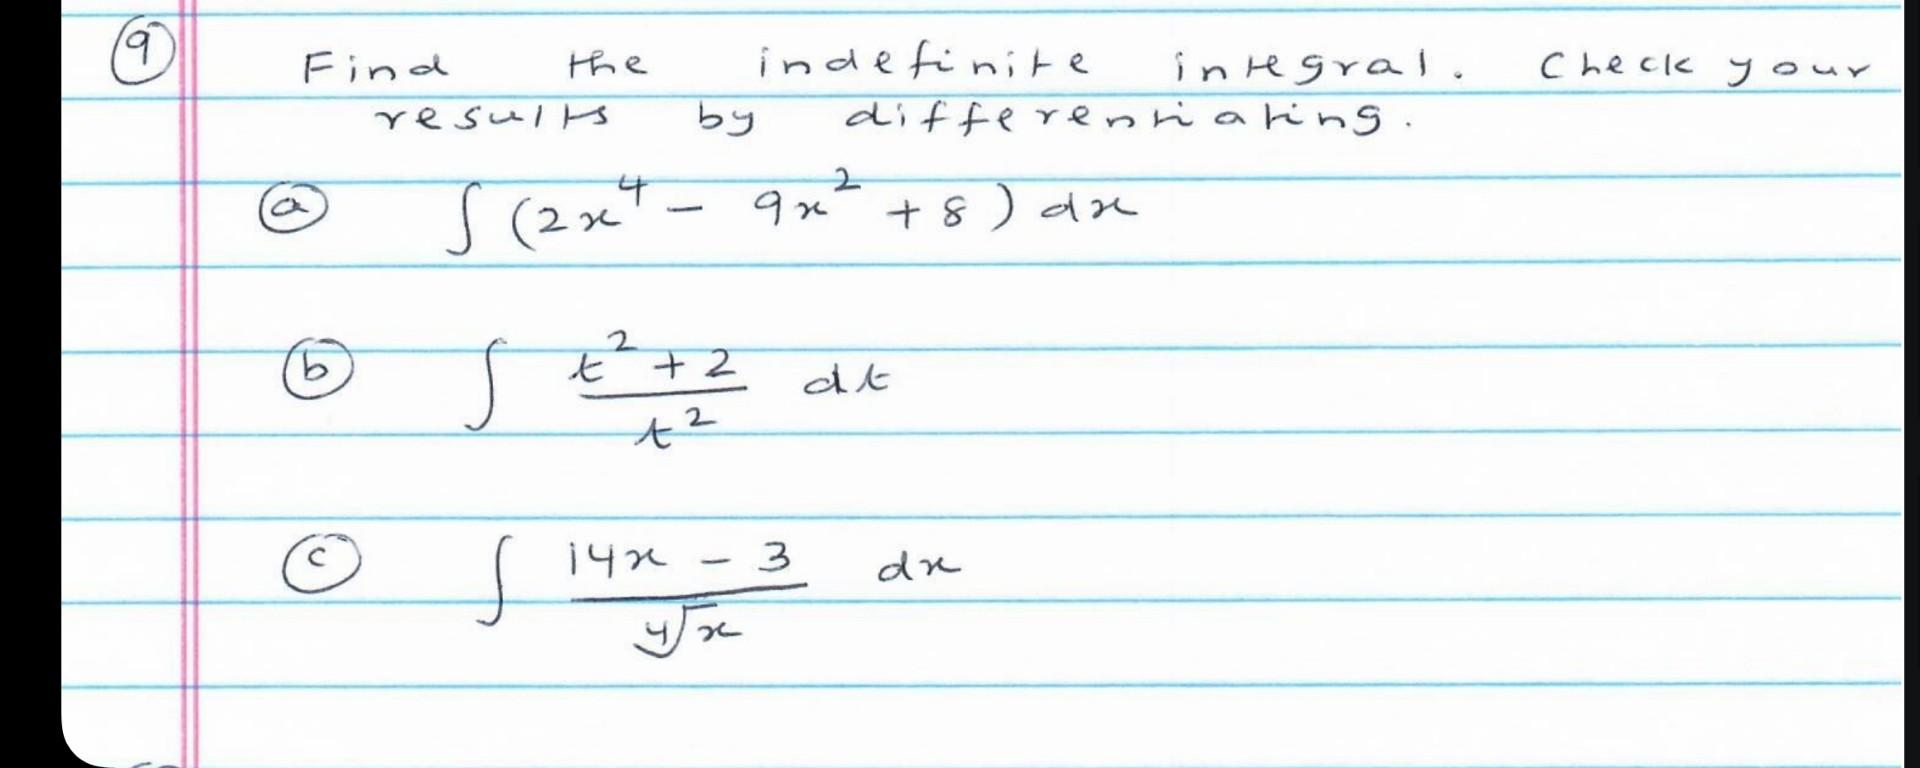 9 Find the indefinite integral. Check your
results by differentiating.
a ∫ (2x⁴ - 9x² + 8) dx
b ∫ (t² + 2)/t² dt
c ∫ (14x - 3)/∜x dx